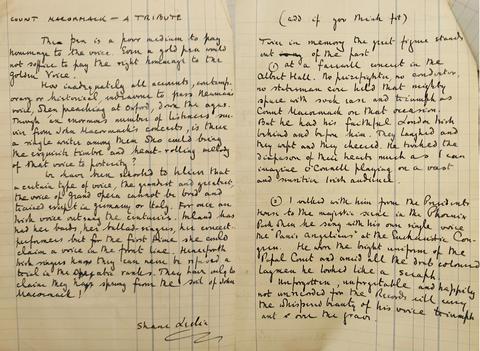 COUNT MACORMACK — A TRIBUTE
The pen is a poor medium to pay
hommage to the voice. Even a gold pen would
not suffice to pay the right hommage to the
Golden Voice.
How inadequately all accounts, contemp-
orary or historical, endeavour to pass
down the ages.
Though an enormous number of listeners sur-
vive from John Macormack's concerts, is there
a single writer among them who could bring
the exquisite timbre and heart-rolling melody
of that voice to posterity?
We have been schooled to believe that
a certain type of voice, the grandest and greatest,
the voice of grand opera cannot be bred and
trained except in Germany or Italy. For once an
Irish voice outsang the centuries. Ireland has
had her bards, her ballad-singers, her concert-
performers but for the first time she could
claim a voice in the first line. Henceforth
Irish singers know they can never be refused a
trial in the operatic ranks. They have only to
claim they have sprung from the soil of John
Macormack!
Shane Leslie
(add if you think fit)
Twice in memory the great figure stands
out of the past
(1) at a farewell concert in the
Albert Hall. No prizefighter, no conductor,
no statesman ever held that mighty
space with such ease and triumph as
Count Macormack on that occasion.
But he had his faithful London Irish
behind and before him. They laughed and
they wept and they cheered. He touched the
diapason of their hearts much as I can
imagine O'Connell playing on a vast
and sensitive Irish audience.
(2) I walked with him from the Presidents
House to the majestic scene in the Phoenix
Park when he sang with his own single voice
the "Panis Angelicus" at the Eucharistic Con-
gress. He wore the bright uniform of the
Papal Court and amid all the drab coloured
laymen he looked like a seraph.
Unforgotten, unforgetable and happily
not unrecorded for the Records will carry
the whispered beauty of his voice triumph-
ant over the grave.